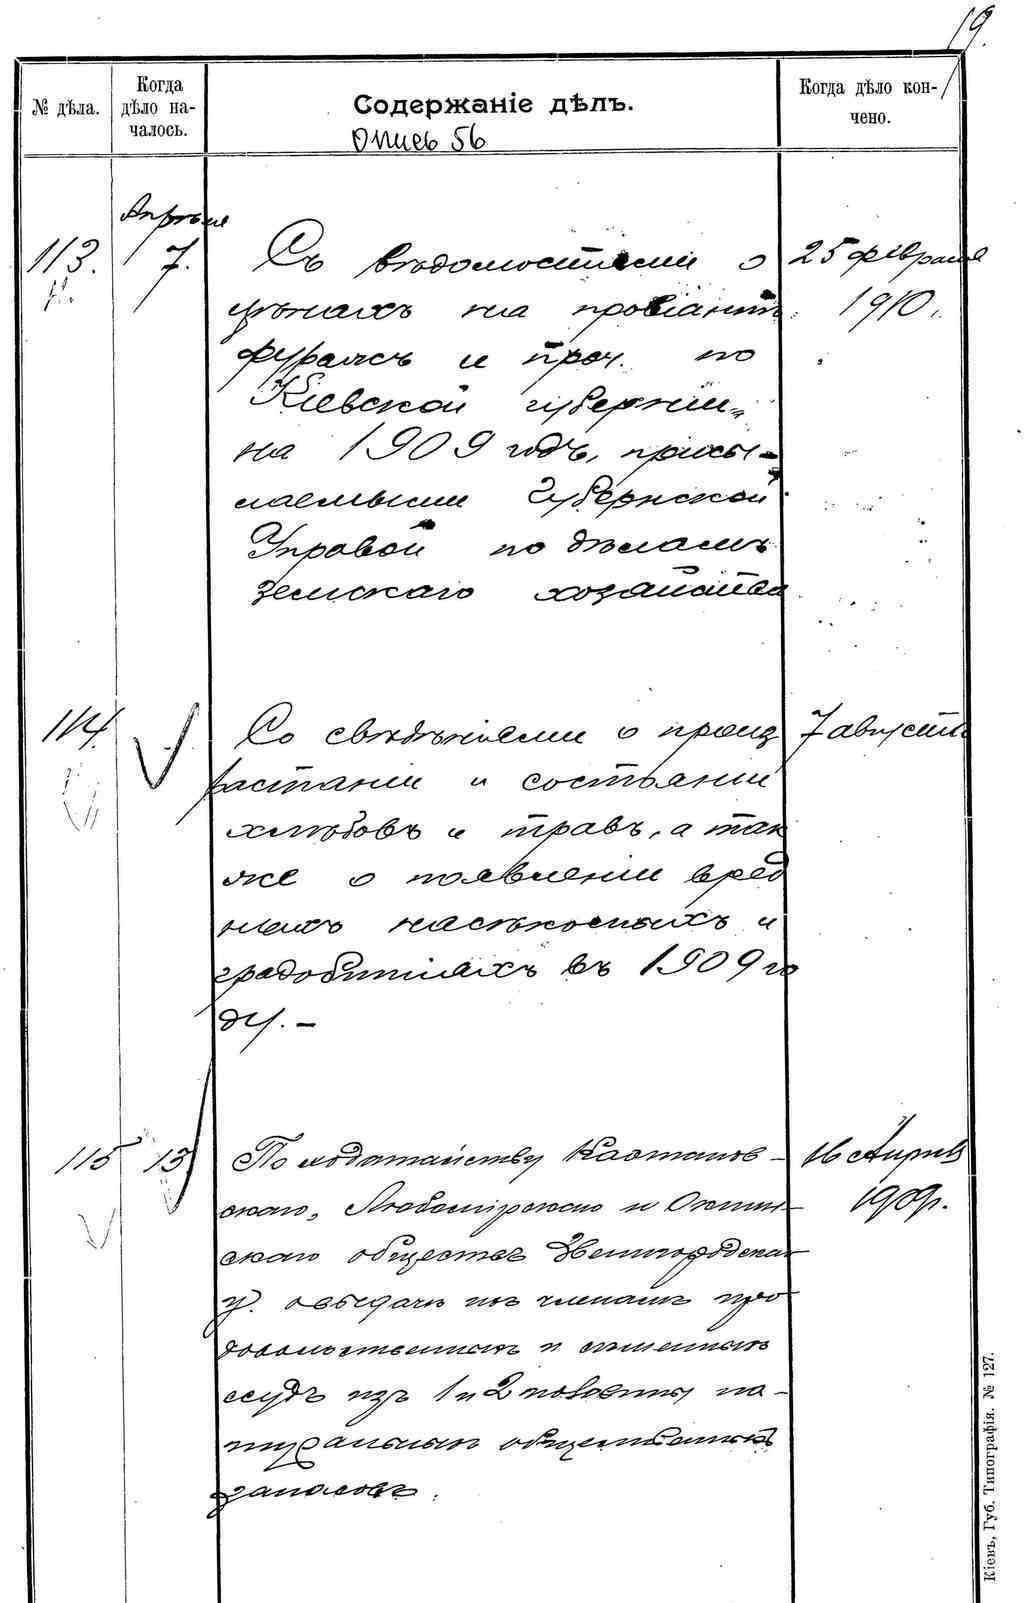 19.
№ дѣла.
Когда
дѣло на-
чалось.
Содержаніе дѣлъ.
Когда дѣло кон-
чено.
Опись 56
Апрѣля
113.
7.
Съ вѣдомостями о
цѣнахъ на провіантъ
фуражъ и проч. по
Кіевской губерніи
на 1909 годъ, присы-
лаемыми Губернской
Управой по дѣламъ
земскаго хозяйства
25 февраля
1910.
114.
Со свѣдѣніями о произ
растаніи и состояніи
хлѣбовъ и травъ, а так
же о появленіи вред
ныхъ насѣкомыхъ и
градобитіяхъ въ 1909 го
ду. –
7 августа
115
13
По ходатайству
скаго, и
скаго обществъ Звенигородскаго
у. о выдачѣ ихъ членамъ про
довольственныхъ и сѣменныхъ
ссудъ изъ 1 и 2 половины на-
туральныхъ общественныхъ
запасовъ.
16 Апрѣля
1909г.
Кіевъ, Губ. Типографія. № 127.